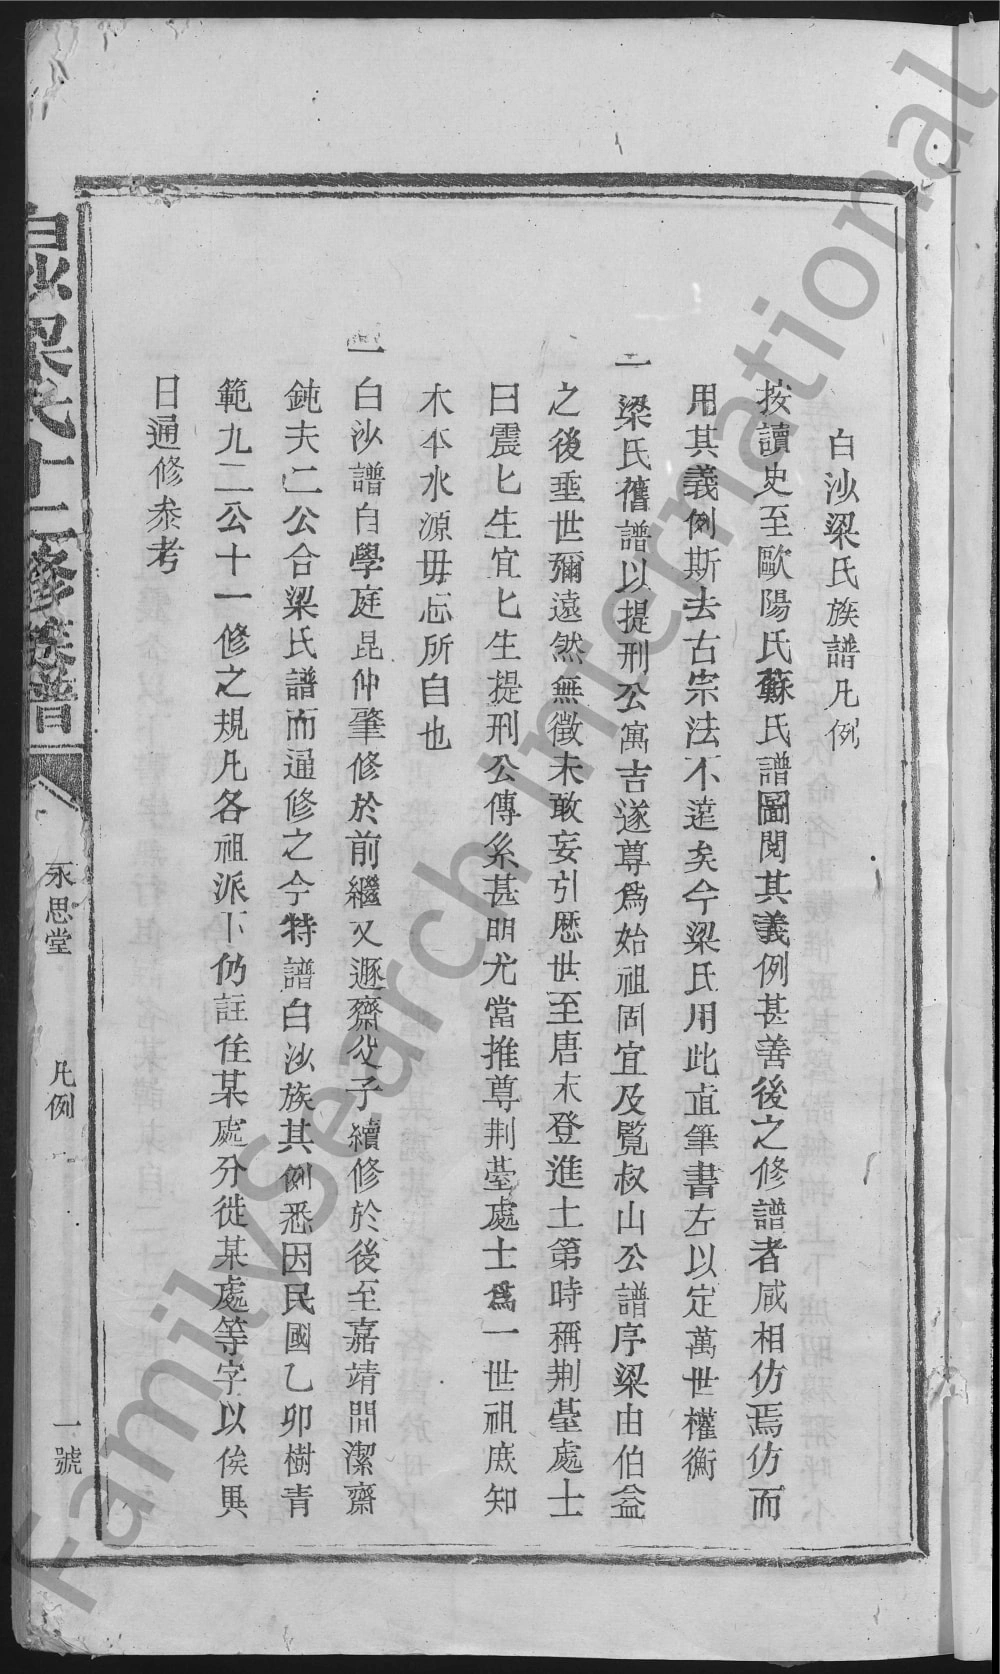 白沙梁氏族譜凡例
按讀史至歐陽氏蘇氏譜圖閱其義例甚善後之修譜者咸相仿焉仿而
用其義例斯去古宗法不遠矣今梁氏用此直筆書左以定萬世權衡
一梁氏舊譜以提刑公寓吉遂尊爲始祖固宜及覧叔山公譜序梁由伯益
之後垂世彌遠然無徵未敢妄引歷世至唐末登進士第時稱荆臺處士
曰震匕生宜匕生提刑公傳系甚明尤當推尊荆臺處士爲一世祖庶知
木本水源毋忘所自也
一白沙譜自學庭昆仲肇修於前繼又遯齋父子續修於後至嘉靖間潔齋
鈍夫二公合梁氏譜而通修之今特譜白沙族其例悉因民國乙卯樹青
範九二公十一修之規凡各祖派下仍註住某處分徙某處等字以俟異
日通修叅考
白沙梁氏十二修族譜
永思堂
凡例
一號
FamilySearch International